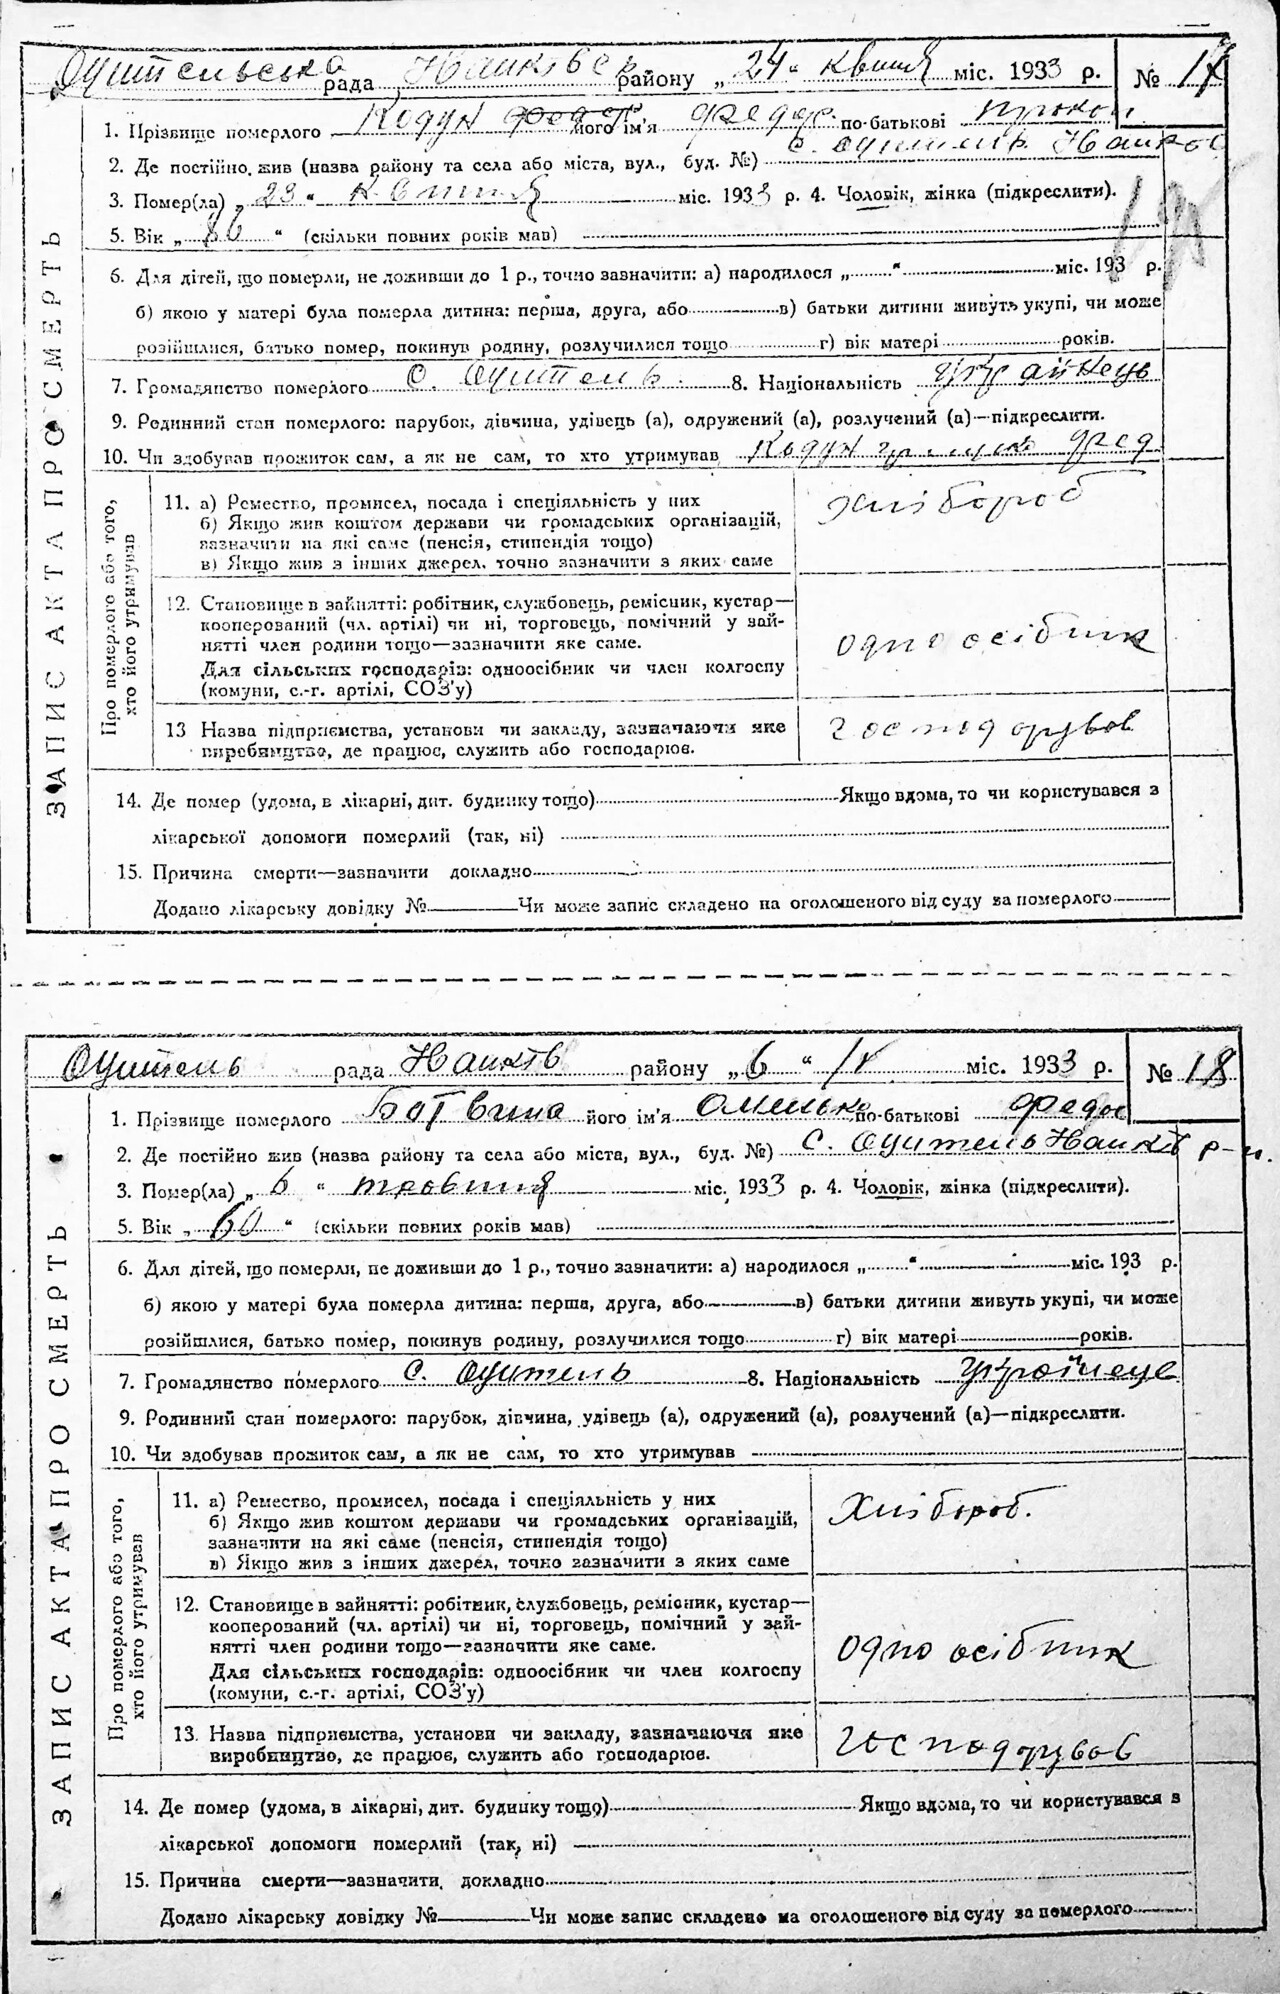 ЗАПИС АКТА ПРО СМЕРТЬ
рада районну „24“ квітня міс. 1933 р. № 17
1. Прізвище померлого Кодун його ім'я Федор по-батькові Прокоп
2. Де постійно жив (назва району та села або міста, вул., буд. №) с. Оцитель
3. Помер(ла) „23“ квітня міс. 1933 р. 4. Чоловік, жінка (підкреслити).
5. Вік „86“ (скільки повних років мав)
6. Для дітей, що померли, не доживши до 1 р., точно зазначити: а) народилося „ “ міс. 193 р.
б) якою у матері була померла дитина: перша, друга, або в) батьки дитини живуть укупі, чи може
розійшлися, батько помер, покинув родину, розлучилися тощо г) вік матері років.
7. Громадянство померлого с. Оцитель 8. Національність Українець
9. Родинний стан померлого: парубок, дівчина, удівець (а), одружений (а), розлучений (а)—підкреслити.
10. Чи здобував прожиток сам, а як не сам, то хто утримував Кодун Фед
Про померлого або того, хто його утримував
11. а) Ремество, промисел, посада і спеціяльність у них
б) Якщо жив коштом держави чи громадських організацій,
зазначити на які саме (пенсія, стипендія тощо)
в) Якщо жив з інших джерел, точно зазначити з яких саме
Хлібороб
12. Становище в зайнятті: робітник, службовець, ремісник, кустар—
кооперований (чл. артілі) чи ні, торговець, помічний у зай-
нятті член родини тощо—зазначити яке саме.
Для сільських господарів: одноосібник чи член колгоспу
(комуни, с.-г. артілі, СОЗ'у)
одноосібник
13 Назва підприємства, установи чи закладу, зазначаючи яке
виробництво, де працює, служить або господарює.
господарував
14. Де помер (удома, в лікарні, дит. будинку тощо) Якщо вдома, то чи користувався з
лікарської допомоги померлий (так, ні)
15. Причина смерти—зазначити докладно
Додано лікарську довідку № Чи може запис складено на оголошеного від суду за померлого
ЗАПИС АКТА ПРО СМЕРТЬ
Оцитель рада району „6“ міс. 1933 р. № 18
1. Прізвище померлого Ботвина його ім'я Омелько по-батькові Федос
2. Де постійно жив (назва району та села або міста, вул., буд. №) с. Оцитель р-н.
3. Помер(ла) „6“ травня міс. 1933 р. 4. Чоловік, жінка (підкреслити).
5. Вік „60“ (скільки повних років мав)
6. Для дітей, що померли, не доживши до 1 р., точно зазначити: а) народилося „ “ міс. 193 р.
б) якою у матері була померла дитина: перша, друга, або в) батьки дитини живуть укупі, чи може
розійшлися, батько помер, покинув родину, розлучилися тощо г) вік матері років.
7. Громадянство померлого с. Оцитель 8. Національність Українець
9. Родинний стан померлого: парубок, дівчина, удівець (а), одружений (а), розлучений (а)—підкреслити.
10. Чи здобував прожиток сам, а як не сам, то хто утримував
Про померлого або того, хто його утримував
11. а) Ремество, промисел, посада і спеціяльність у них
б) Якщо жив коштом держави чи громадських організацій,
зазначити на які саме (пенсія, стипендія тощо)
в) Якщо жив з інших джерел, точно зазначити з яких саме
Хлібороб.
12. Становище в зайнятті: робітник, службовець, ремісник, кустар—
кооперований (чл. артілі) чи ні, торговець, помічний у зай-
нятті член родини тощо—зазначити яке саме.
Для сільських господарів: одноосібник чи член колгоспу
(комуни, с.-г. артілі, СОЗ'у)
одноосібник
13. Назва підприємства, установи чи закладу, зазначаючи яке
виробництво, де працює, служить або господарює.
господарував
14. Де помер (удома, в лікарні, дит. будинку тощо) Якщо вдома, то чи користувався з
лікарської допомоги померлий (так, ні)
15. Причина смерти—зазначити докладно
Додано лікарську довідку № Чи може запис складено на оголошеного від суду за померлого